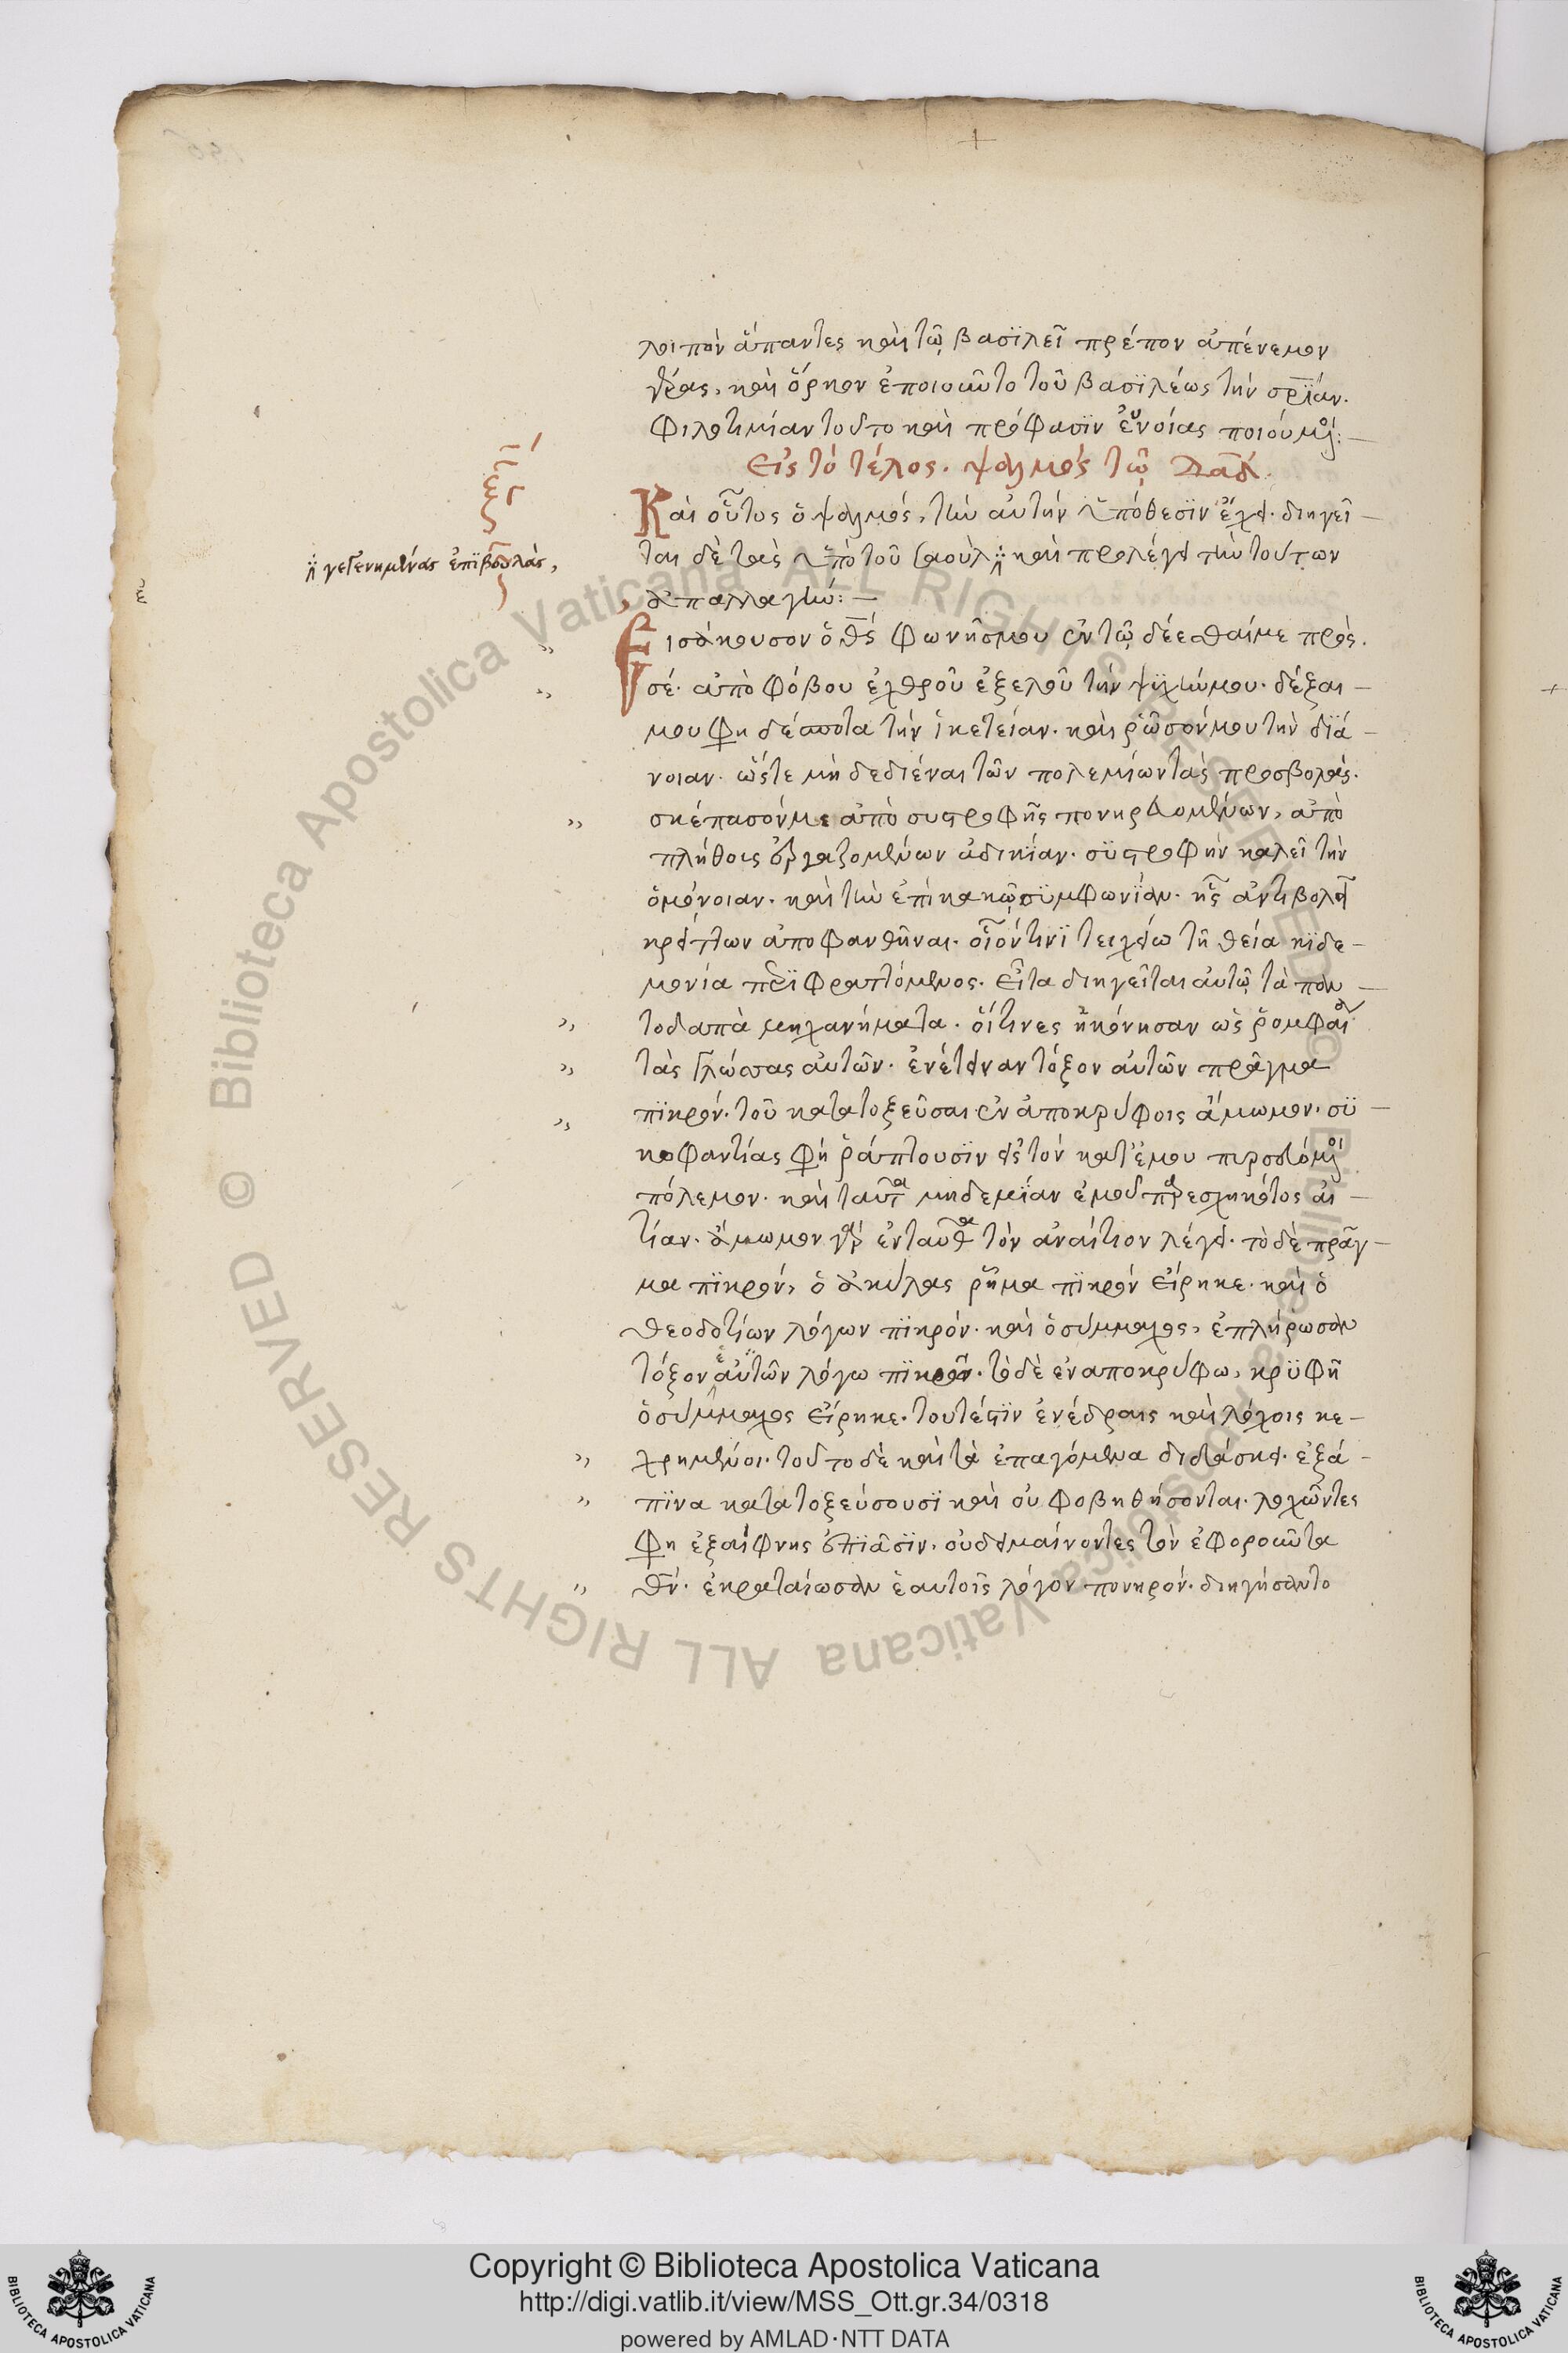 λοιπὸν ἅπαντες καὶ τῶ βασϊλεῖ πρέπον ἀπένεμον
γέρας, καὶ ὅρκον ἐποιοῦντο τοῦ βασϊλέως τὴν σρῖαν.
Φιλοτιμίαν τοῦτο καὶ πρόφασϊν εὐνοίας ποιούμοι:—
Εἰς τὸ τέλος. ψαλμὸς τῶ Δαδ.
ξγ
Καὶ οὗτος ὁ ψαλμός, τὴν αὐτὴν ὑπόθεσϊν ἔχει. διηγεῖ—
ται δὲ τὰς ὑπὸ τοῦ σαοὺλ καὶ προλέγει τὴν τούτων
γεγενημένας ἐπϊβουλὰς,
ἀπαλλαγήν:—
Εἰσάκουσον ὁ θς φωνῆς μου ἐν τῶ δέεσθαί με πρὸς.
σέ. ἀπὸ φόβου ἐχθροῦ ἐξελοῦ τὴν ψϋχήν μου. δέξαι—
μου φη δέσποτα τὴν ἱκετείαν. καὶ ῥῶσόν μου τὴν δϊά—
νοιαν. ὥστε μὴ δεδιέναι τῶν πολεμίων τὰς προσβολάς.
σκέπασόν με ἀπὸ συστροφῆς πονηρευομένων, ἀπὸ
πλήθους ἐργαζομένων ἀδικϊαν. συστροφὴν καλεῖ τὴν
ὁμόνοιαν. καὶ τὴν ἐπὶ κακῶ σϋμφωνϊαν. ἧς ἀντιβολεῖ
κρείττων ἀποφανθῆναι. οἷόν τινϊ τειχείω τῆ θεία κηδε—
μονία περϊφραττόμενος. εἶτα διηγεῖται αὐτῶ τὰ παν—
τοδαπὰ μηχανήματα. οἵτινες ἠκόνησαν ὡς ῥομφαίαν
τὰς γλώσσας αὐτῶν. ἐνέτειναν τόξον αὐτῶν πρᾶγμα
πϊκρόν. τοῦ κατατοξεῦσαι ἐν ἀποκρύφοις ἄμωμον. σϋ—
κοφαντίας φη ῥάπτουσϊν εἰς τὸν κατ' ἐμου
πόλεμον. καὶ ταῦτα μηδεμϊαν ἐμοῦ παρεσχηκότος αἰ—
τίαν. ἄμωμον γὰρ ἐνταῦθα τὸν ἀναίτιον λέγει. τὸ δὲ πρᾶγ—
μα πϊκρόν, ὁ ἀκύλας ῥῆμα πϊκρόν εἴρηκε. καὶ ὁ
θεοδοτίων λόγων πϊκρόν. καὶ ὁ σύμμαχος, ἐπλήρωσαν
τόξον ἑαὐτῶν λόγω πϊκρῶ. τὸ δὲ ἐν αποκρύφω, κρϋφῆ
ὁ σύμμαχος εἴρηκε. τουτέστϊν ἐνέδραις καὶ λόχοις κε—
χρημένοι. τοῦτο δὲ καὶ τὰ ἐπαγόμενα διδάσκει. ἐξά—
πϊνα κατατοξεύσουσϊ καὶ οὐ φοβηθήσονται. λοχῶντες
φη ἐξαίφνης ἐπϊᾶσϊν. οὐ δειμαίνοντες τὸν ἐφοροῦντα
θν. ἐκραταίωσαν ἑαυτοῖς λόγον πονηρόν. διηγήσαντο
Copyright © Biblioteca Apostolica Vaticana
http://digi.vatlib.it/view/MSS_Ott.gr.34/0318
powered by AMLAD·NTT DATA